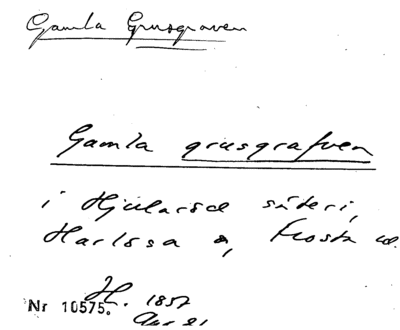 Gamla Grusgraven
Gamla grusgrafven
i Hjularöd säteri,
Harlösa s, Frosta hd.
H. 1857
Nr 10575.